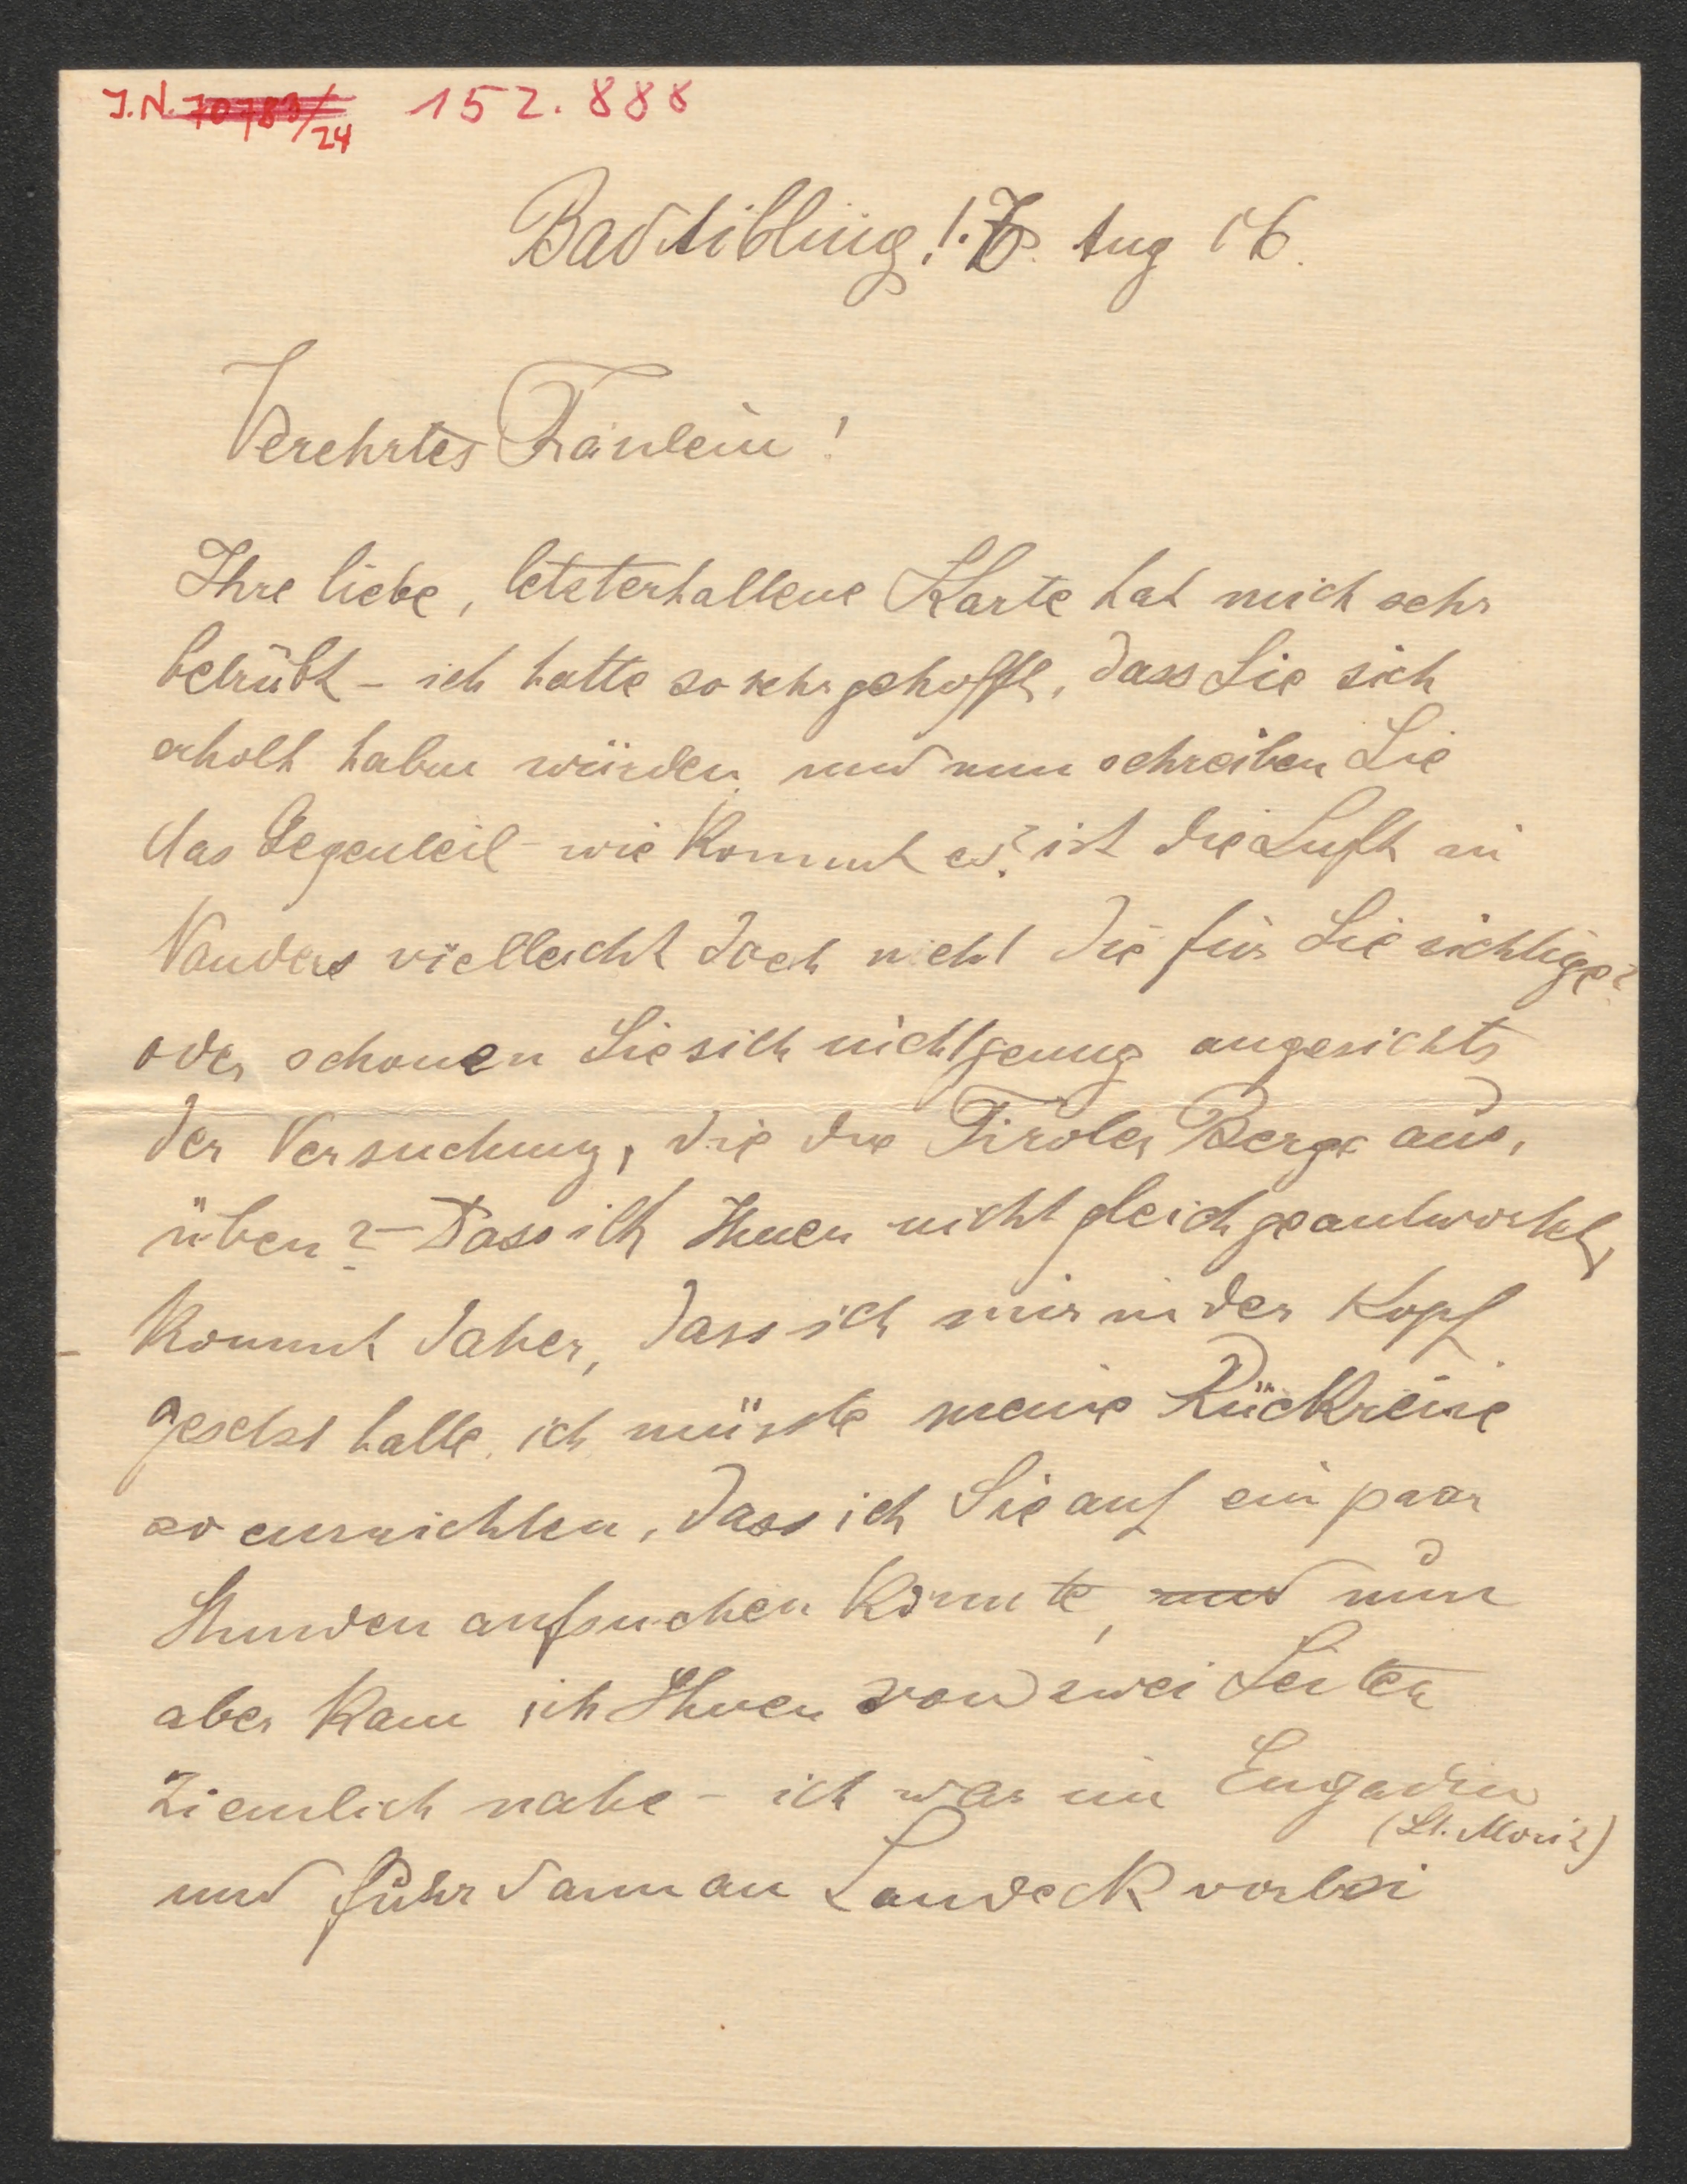 J.N. 70783/24 152.888
Bad Aibling! 7. Aug 06.
Verehrtes Fräulein!
Ihre liebe, letzterhaltene Karte hat mich sehr
betrübt – ich hatte so sehr gehofft, dass Sie sich
erholt haben würden und nun schreiben Sie
das Gegenteil – wie kommt es? ist die Luft in
Nauders vielleicht doch nicht die für Sie richtige?
oder schonen Sie sich nicht genug angesichts
der Versuchung, die die Tiroler Berge aus,
üben? – Dass ich Ihnen nicht gleich geantwortet,
kommt daher, dass ich mir in den Kopf
gesetzt hatte, ich müsste meine Rückreise
so einrichten, dass ich Sie auf ein paar
Stunden aufsuchen könnte, und nun
aber kam ich Ihnen von zwei Seiten
ziemlich nahe – ich war im Engadin
(St. Moriz)
und fuhr dann an Landeck vorbei